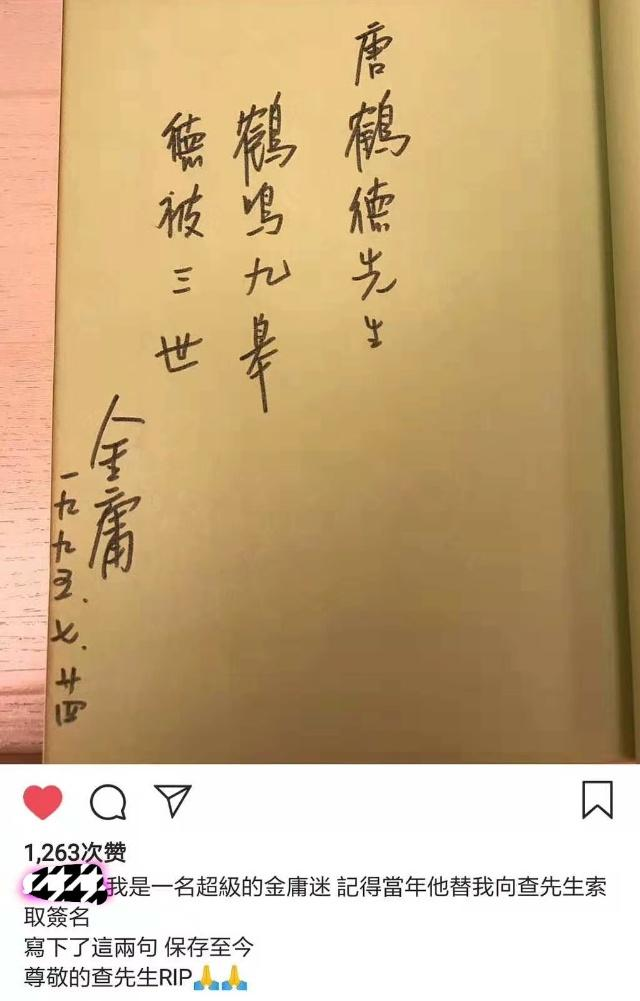 唐鶴德先生
鶴鳴九皋
德被三世
金庸
一九九五.七.廿四
1,263次赞
我是一名超級的金庸迷 記得當年他替我向查先生索
取簽名
寫下了這兩句 保存至今
尊敬的查先生RIP🙏🙏